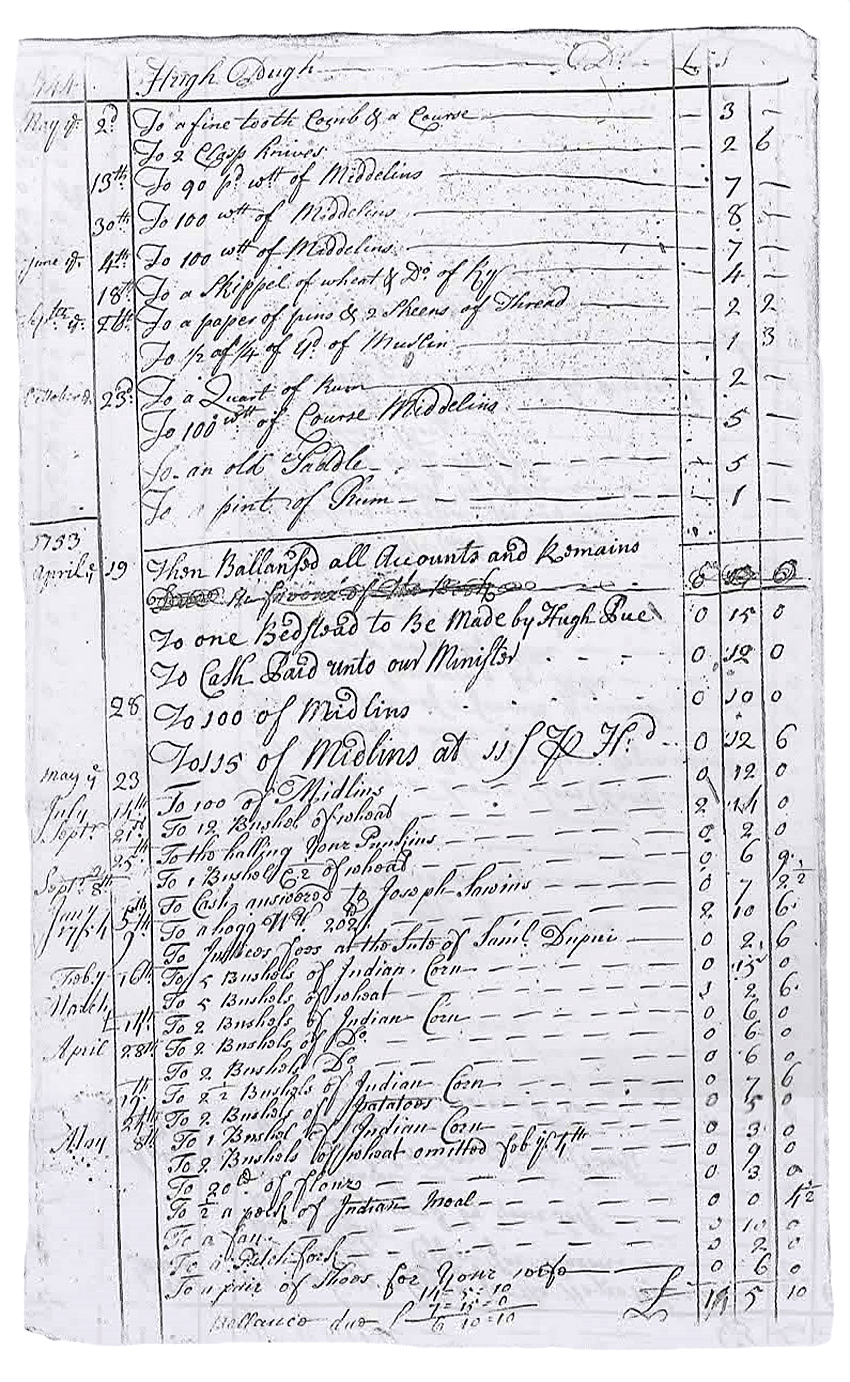 1744 Hugh Pugh Dr £ s
May ye 2d To a fine tooth Comb & a Course 3 —
To 2 Clasp Knives 2 6
13th To 90 pd wtt of Middelins 7 —
30th To 100 wtt of Middelins 8 —
June ye 4th To 100 wtt of Middelins 7 —
18th To a Skippel of wheat & Do of Ry 4 —
Septr ye To a paper of pins & 2 Skeens of Thread 2 2
To 1/2 of 1/4 of yd of Muslin 1 3
October 23d To a Quart of Rum 2 —
To 100 wtt of Course Middelins 5 —
To an old Saddle 5 —
To a pint of Rum 1 —
1753
April ye 19 Then Ballansed all Accounts and Remains
To one Bedstead to Be Made by Hugh Pue 0 15 0
To Cash Paid unto our Minister 0 12 0
28 To 100 of Midlins 0 10 0
To 115 of Midlins at 11 s 0 12 6
May ye 23 To 100 of Midlins 0 12 0
July 14th To 12 Bushel of whead 2 14 0
Septr 21st To the halling Your Punkins 0 2 0
25th To 1 Bushel of whead 0 6 9
Septr 8th To Cash answered to Joseph Sowins 0 7 2 1/2
Janry 5th To a hogg Wt 202 2 10 6
1754 9 To Justices foes at the Sute of Saml Dupui 0 2 6
Feby 16th To 5 Bushels of Indian Corn 0 15 0
To 5 Bushels of wheat 1 2 6
March 14th To 2 Bushels of Indian Corn 0 6 0
To 2 Bushels of Do 0 6 0
April 28th To 2 Bushels Do 0 6 0
To 2 1/2 Bushels of Indian Corn 0 7 6
19th To 2 Bushels of potatoes 0 5 0
24th To 1 Bushel of Indian Corn 0 3 0
May 8th To 2 Bushels of wheat omitted feb ye 4th 0 9 0
To 20 lb of flour 0 3 0
To 1/2 a peck of Indian Meal 0 0 4 1/2
To a fan 10 0
To a Pitchfork 2 0
To a pair of Shoes for Your wife 0 6 0
14 = 5 = 10 £ 14 5 10
7 = 15 = 0
Ballance due £ 6 10 = 10